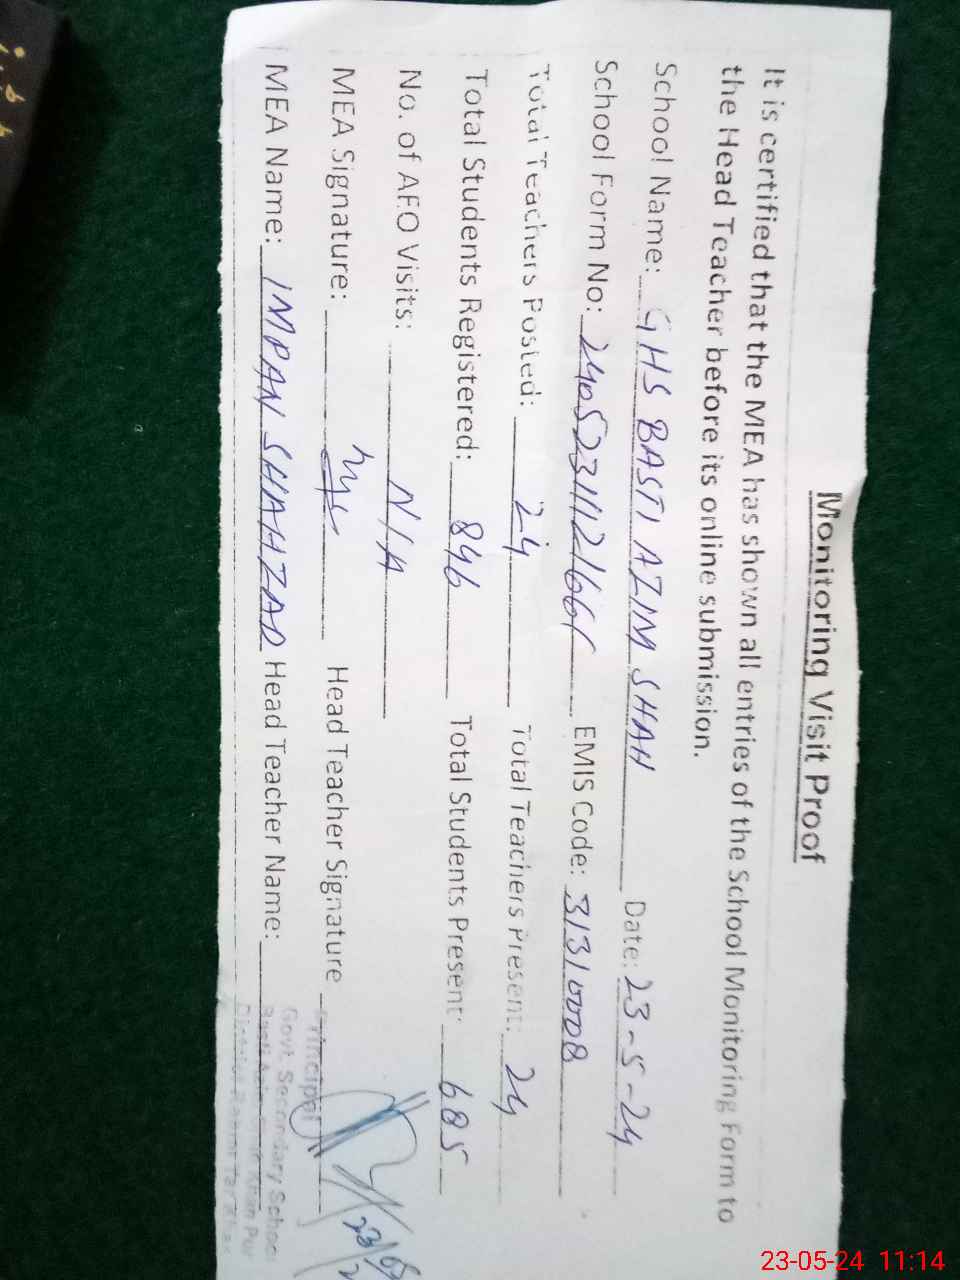 Monitoring Visit Proof
It is certified that the MEA has shown all entries of the School Monitoring Form to
the Head Teacher before its online submission.
School Name: GHS BASTI AZIM SHAH Date: 23-5-24
School Form No: EMIS Code: 31310008
Total Teachers Posted: 24 Total Teachers Present: 24
Total Students Registered: 846 Total Students Present: 685
No. of AEO Visits: N/A
MEA Signature: Head Teacher Signature
MEA Name: IMRAN SHAHZAD Head Teacher Name:
Principal
Govt. Secondary School
23-05-24 11:14